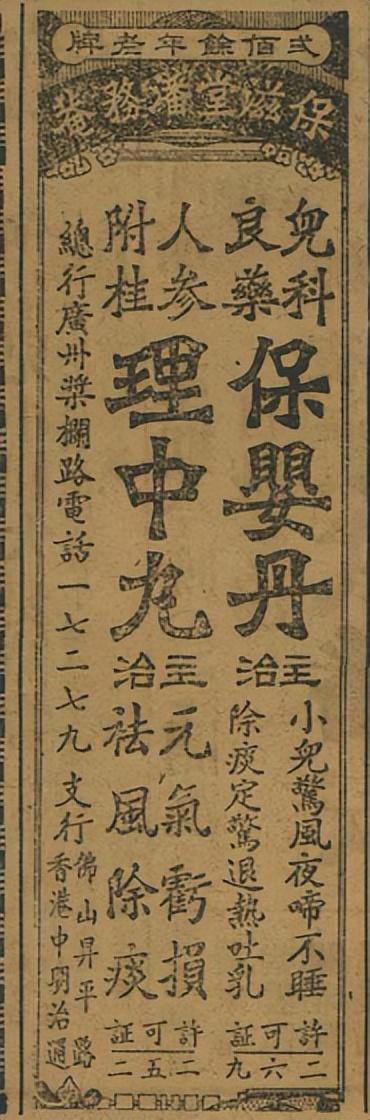 弍佰餘年老牌
保滋堂潘務菴
兒科
良藥
保嬰丹
主治
小兒驚風夜啼不睡
除痰定驚退熱吐乳
許可証
二六九
人参
附桂
理中丸
主治
元氣虧損
祛風除痰
許可証
二五二
總行廣州漿欄路電話一七二七九
支行
佛山昇平路
香港中明治通